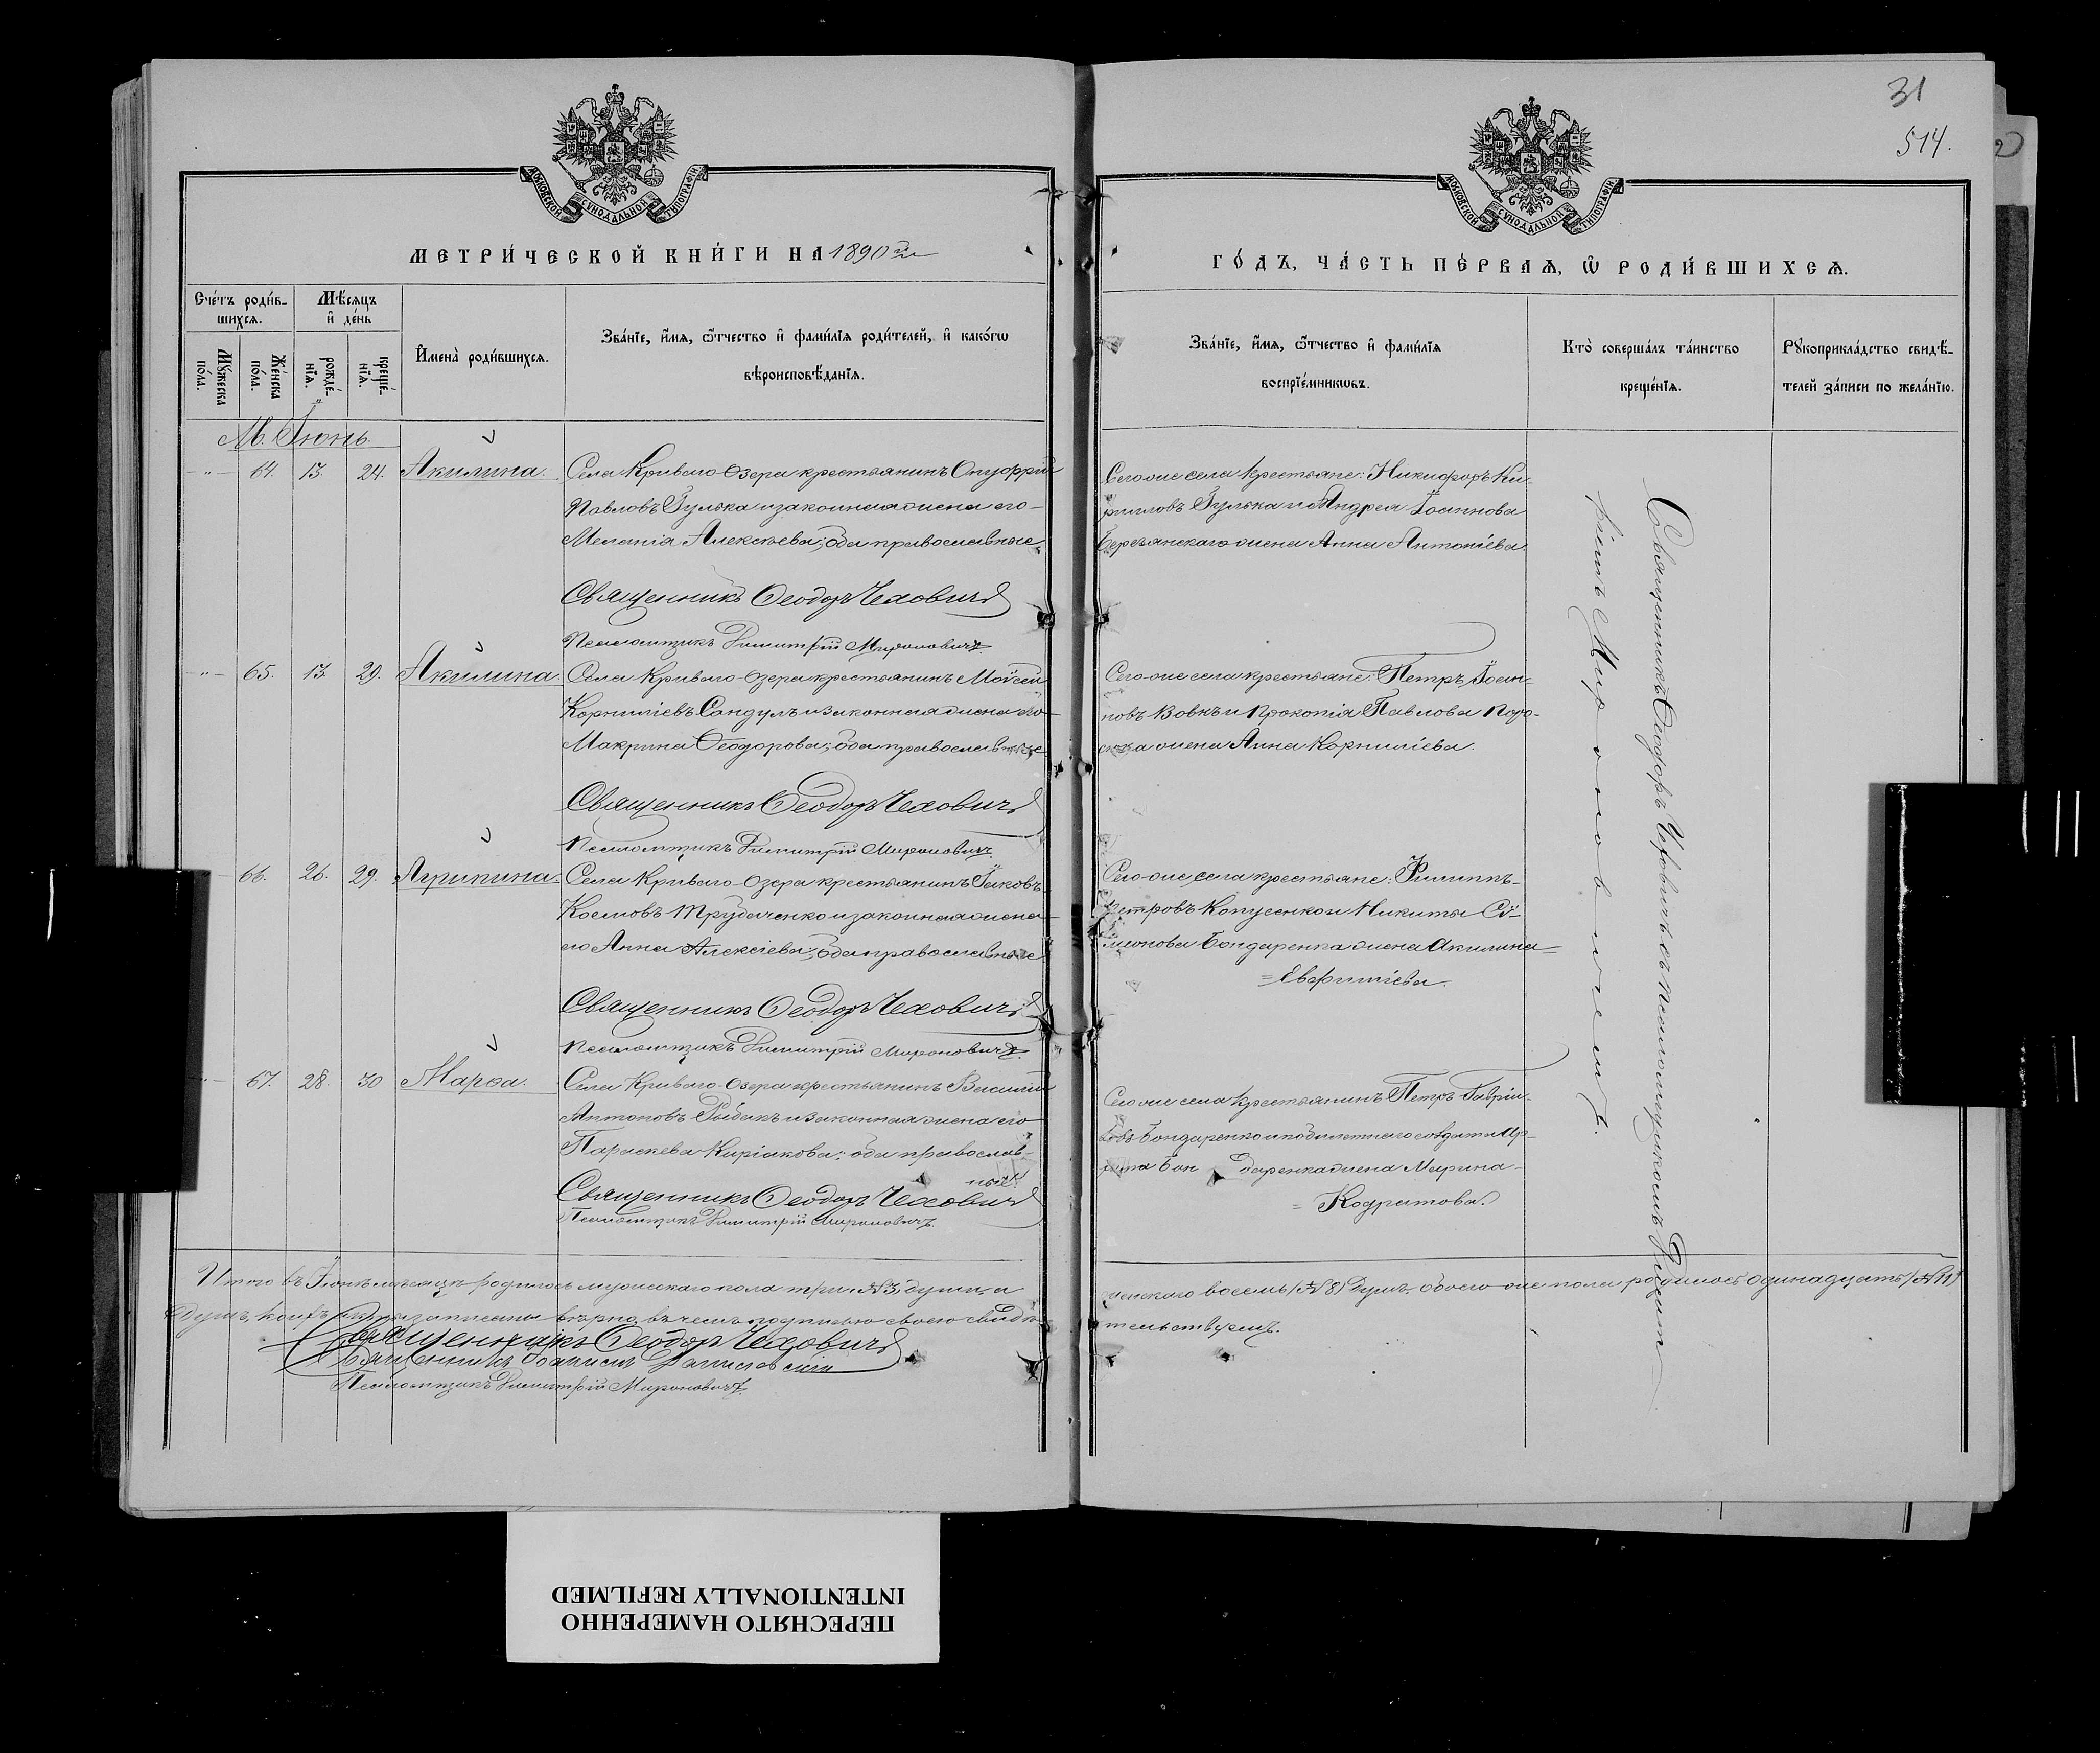 31
514.
МОСКОВСКОЙ СѴНОДАЛЬНОЙ ТИПОГРАФІИ
МОСКОВСКОЙ СѴНОДАЛЬНОЙ ТИПОГРАФІИ
МЕТРИ́ЧЕСКОЙ КНИ́ГИ НА 1890ый
ГО́ДЪ, ЧА́СТЬ ПЕ́РВАѦ, Ѽ РОДИ́ВШИХСѦ.
Сче́тъ роди́в-
шихсѧ.
Мѣ́сѧцъ
и҆ де́нь
Мꙋ́жеска по́ла.
Же́нска по́ла.
рожде́-
нїѧ.
креще́-
нїѧ.
И҆мена̀ роди́вшихсѧ.
Зва́нїе, и҆́мѧ, ѻ҆́тчество и҆ фами́лїѧ роди́телей, и҆ како́гѡ
вѣроисповѣ́данїѧ.
Зва́нїе, и҆́мѧ, ѻ҆́тчество и҆ фами́лїѧ
воспрїе́мникѡвъ.
Кто̀ соверша́лъ та́инство
креще́нїѧ.
Рꙋкоприкла́дство свидѣ́-
телей за́писи по жела́нїю.
М. Іюнь.
-"- 64. 13. 24. Акилина.
Села Криваго-Озера крестьянинъ Онуфрій
Павловъ Гулька и законная жена его
Меланія Алексѣева; оба православные.
Священникъ Ѳеодоръ Чеховичъ
Псаломщикъ Димитрій Мироновичъ.
Сего-же села крестьяне: Никифоръ Ки-
рилловъ Гулька и Андрея Іоаннова
Березанскаго жена Анна Антоніева.
-"- 65. 13. 29. Акилина.
Села Криваго-Озера крестьянинъ Моѵсей
Корниліевъ Сандулъ и законная жена его
Макрина Ѳеодорова; оба православные
Священникъ Ѳеодоръ Чеховичъ
Псаломщикъ Димитрій Мироновичъ.
Сего-же села крестьяне: Петръ Іоан-
новъ Вовкъ и Прокопія Павлова Поро-
жена Анна Корниліева.
66. 26. 29. Агрипина.
Села Криваго-Озера крестьянинъ Іаковъ
Космовъ Трубаченко и законная жена
его Анна Алексіева; оба православные
Священникъ Ѳеодоръ Чеховичъ
Псаломщикъ Димитрій Мироновичъ.
Сего-же села крестьяне: Филиппъ
Петровъ Копусенко и Никиты Сѵ-
меонова Бондаренка жена Акилина
Евфиміева.
67. 28. 30 Марѳа.
Села Криваго-Озера крестьянинъ Василій
Антоновъ Рыбакъ и законная жена его
Параскева Киріакова; оба православ-
ные.
Священникъ Ѳеодоръ Чеховичъ
Псаломщикъ Димитрій Мироновичъ.
Сего-же села крестьянинъ Петръ Гаврїи-
ловъ Бондаренко и
Бондаренка жена Марина
Кодратова.
Священникъ Ѳеодоръ Чеховичъ съ псаломщикомъ Димит-
ріемъ Мироновичемъ.
Итого въ Іюнѣ мѣсяцѣ родилось мужескаго пола три (№ 3) души, а
женскаго восемь (№ 8) душъ, обоего же пола родилось одинадцать (№ 11)
душъ, записаны вѣрно, въ чемъ подписью своею свидѣ-
тельствуемъ.
Священникъ Ѳеодоръ Чеховичъ
Священникъ
Псаломщикъ Димитрій Мироновичъ.
ПЕРЕСНЯТО НАМЕРЕННО
INTENTIONALLY REFILMED